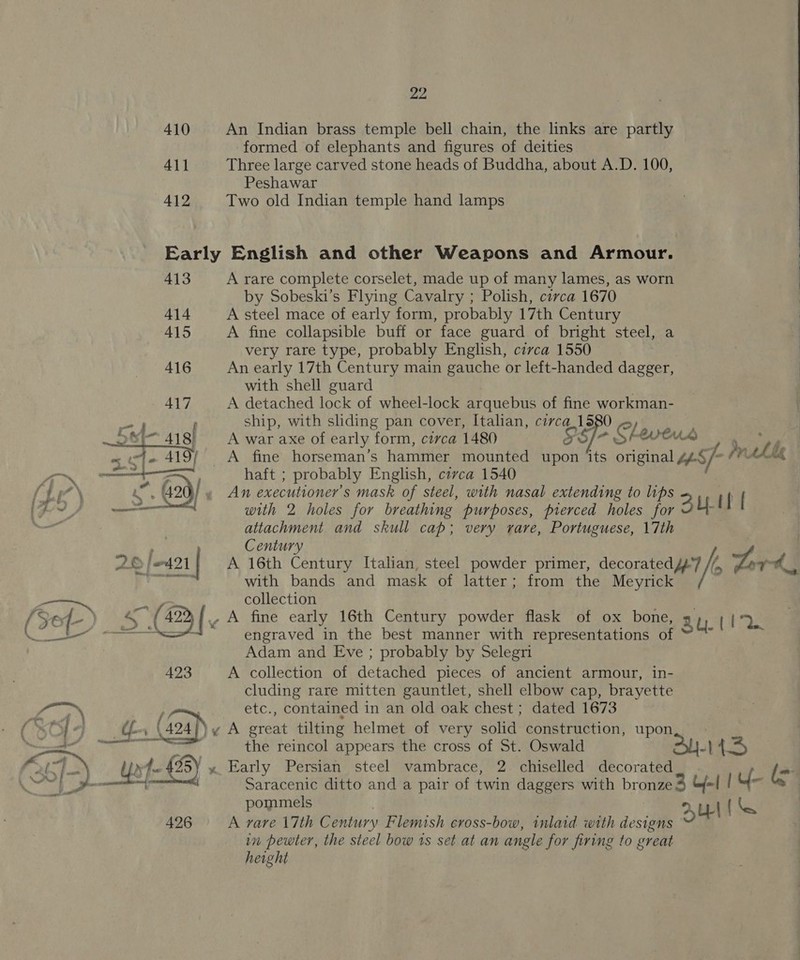 22
410 An Indian brass temple bell chain, the links are partly
formed of elephants and figures of deities
411 Three large carved stone heads of Buddha, about A.D. 100,
Peshawar
412 Two old Indian temple hand lamps
Early English and other Weapons and Armour.
413 A rare complete corselet, made up of many lames, as worn
by Sobeski's Flying Cavalry ; Polish, circa 1670
414 A steel mace of early form, probably 17th Century
415 A fine collapsible buff or face guard of bright steel, a
very rare type, probably English, circa 1550
416 An early 17th Century main gauche or left-handed dagger,
with shell guard
417 A detached lock of wheel-lock arquebus of fine workman-
ship, with sliding pan cover, Italian, circa 1580
418 A war axe of early form, circa 1480 55/- Stevens
419 A fine horseman's hammer mounted upon its original
haft ; probably English, circa 1540
420 An executioner's mask of steel, with nasal extending to lips
with 2 holes for breathing purposes, pierced holes for
attachment and skull cap; very rare, Portuguese, 17th
Century
421 A 16th Century Italian, steel powder primer, decorated
with bands and mask of latter; from the Meyrick
collection
422 A fine early 16th Century powder flask of ox bone,
engraved in the best manner with representations of
Adam and Eve ; probably by Selegri
423 A collection of detached pieces of ancient armour, in-
cluding rare mitten gauntlet, shell elbow cap, brayette
etc., contained in an old oak chest ; dated 1673
424 A great tilting helmet of very solid construction, upon
the reincol appears the cross of St. Oswald
425 Early Persian steel vambrace, 2 chiselled decorated
Saracenic ditto and a pair of twin daggers with bronze
pommels
426 A rare 17th Century Flemish cross-bow, inlaid with designs
in pewter, the steel bow is set at an angle for firing to great
height